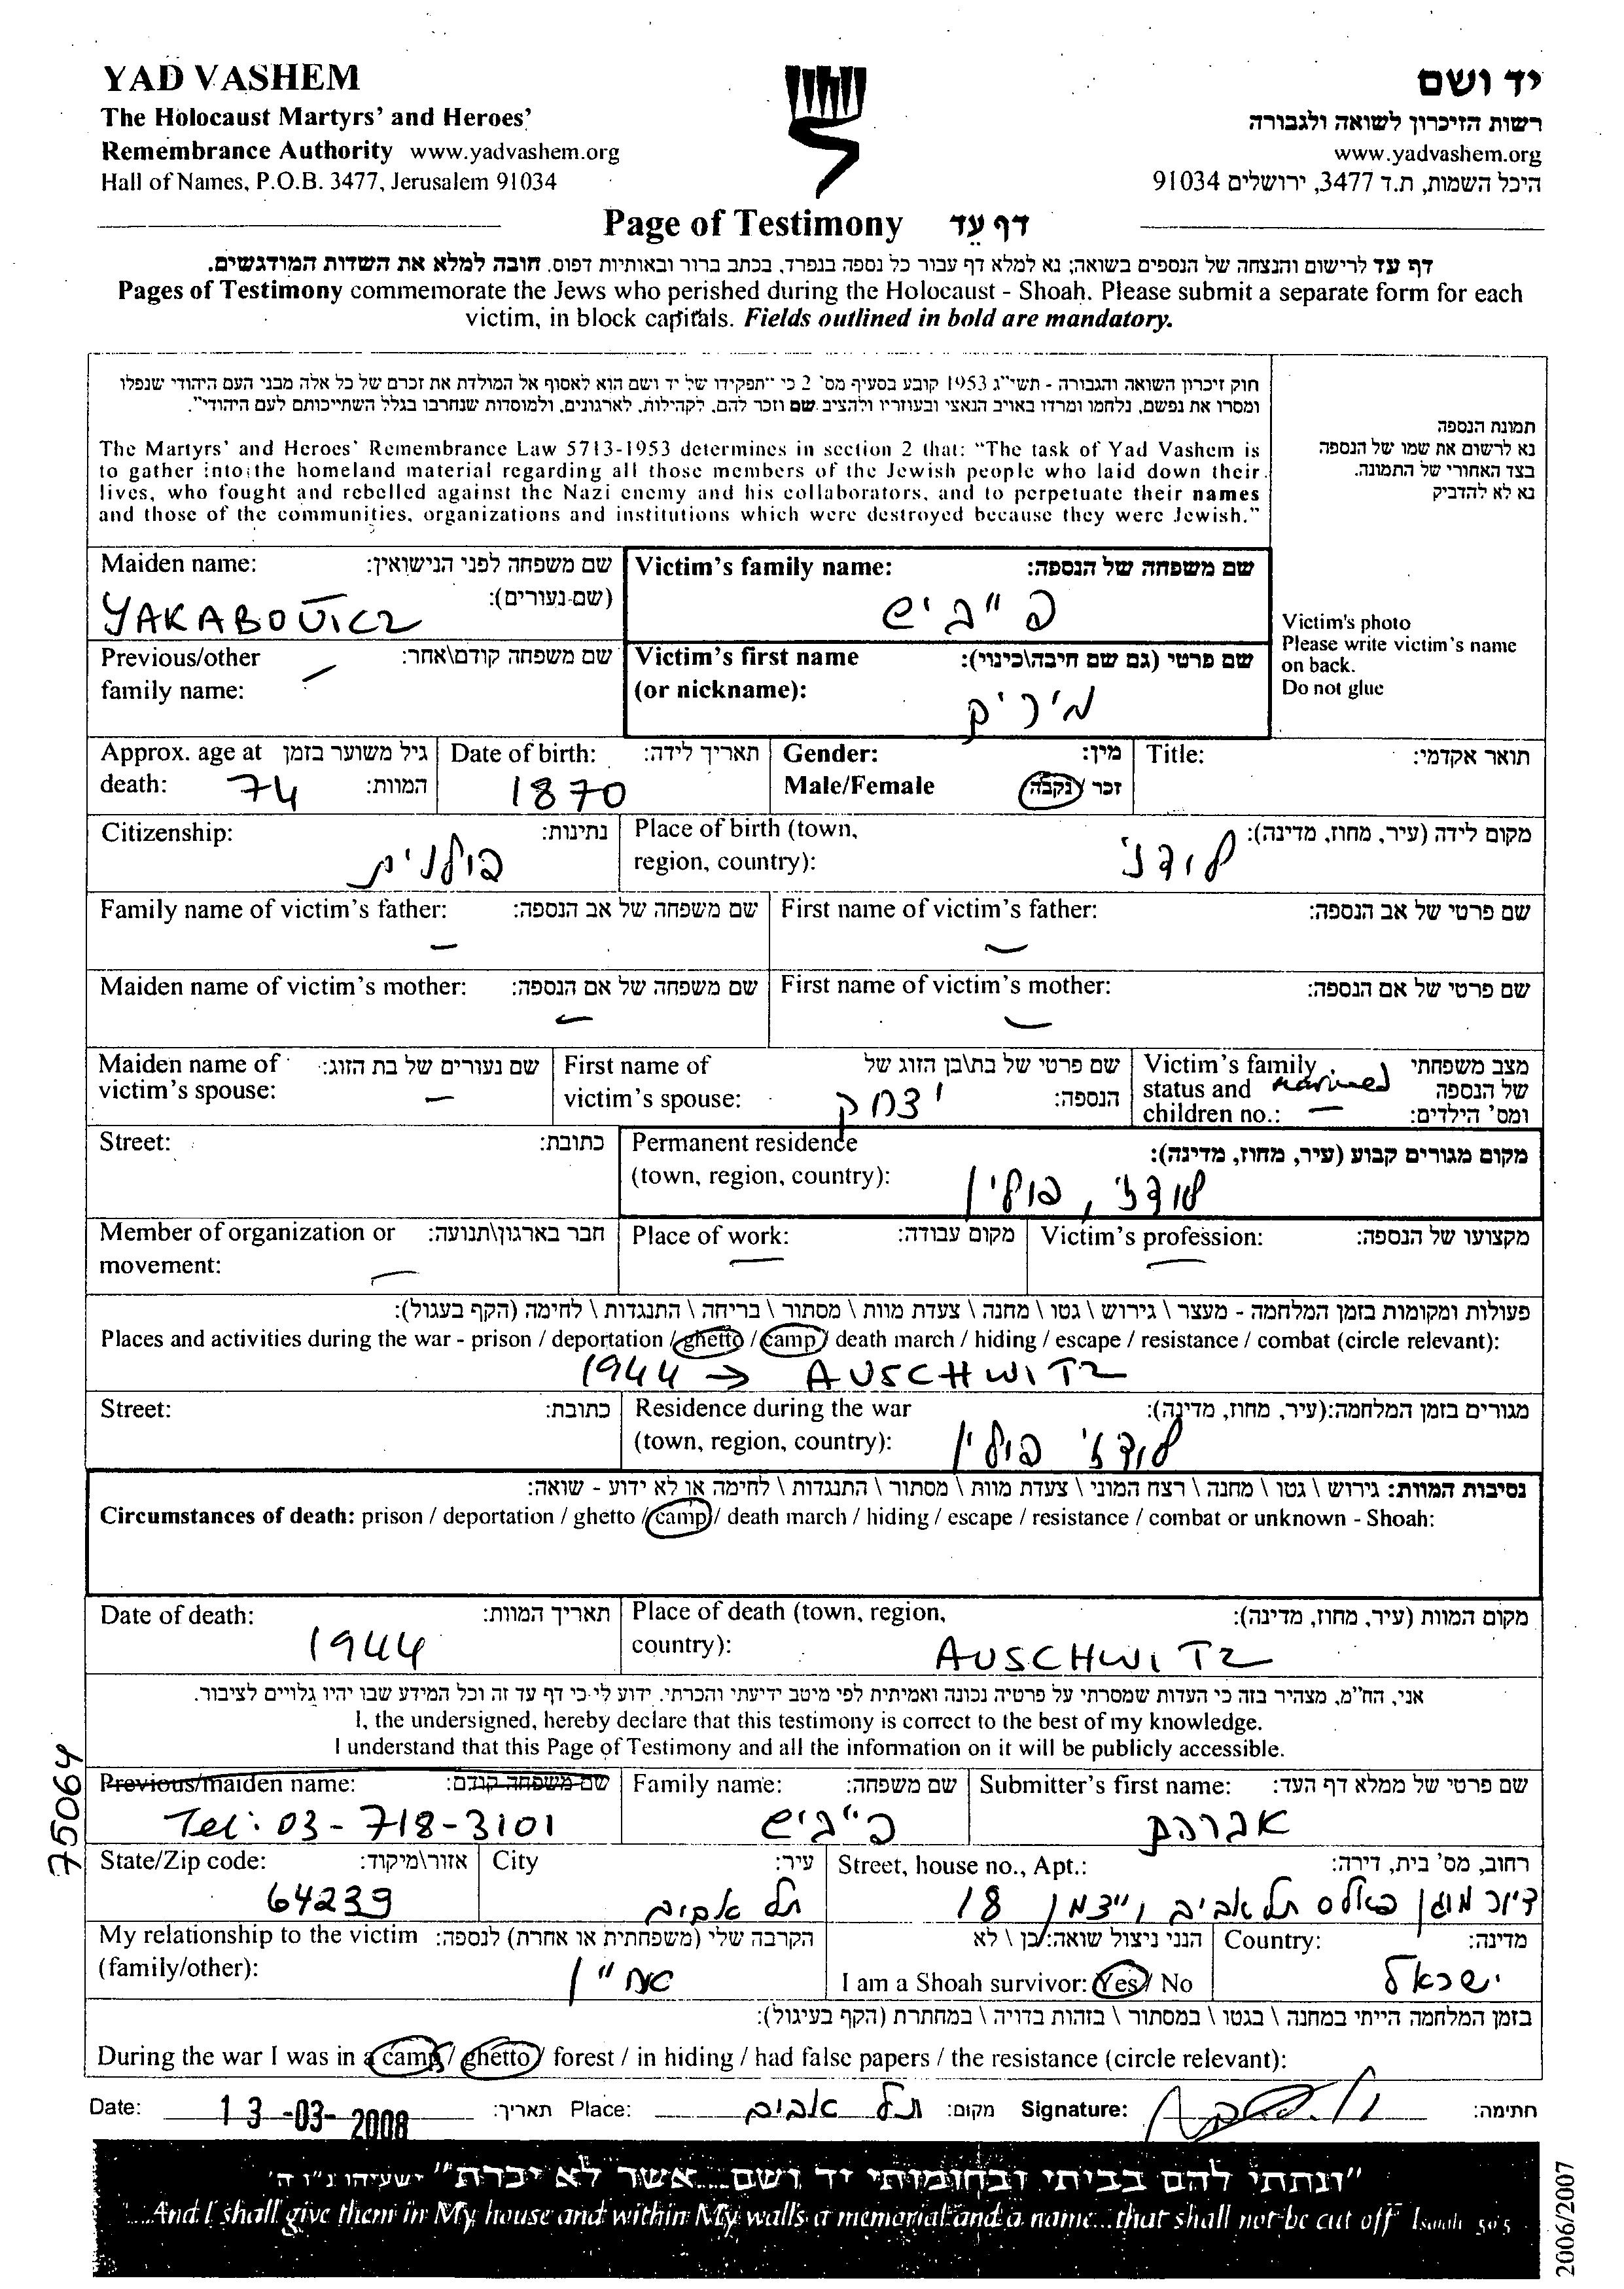 YAD VASHEM
The Holocaust Martyrs' and Heroes'
Remembrance Authority www.yadvashem.org
Hall of Names, P.O.B. 3477, Jerusalem 91034
יד ושם
רשות הזיכרון לשואה ולגבורה
www.yadvashem.org
היכל השמות, ת.ד 3477, ירושלים 91034
Page of Testimony דף עֵד
דף עד לרישום והנצחה של הנספים בשואה; נא למלא דף עבור כל נספה בנפרד, בכתב ברור ובאותיות דפוס. חובה למלא את השדות המודגשים.
Pages of Testimony commemorate the Jews who perished during the Holocaust - Shoah. Please submit a separate form for each
victim, in block capitals. Fields outlined in bold are mandatory.
חוק זיכרון השואה והגבורה - תשי"ג 1953 קובע בסעיף מס' 2 כי "תפקידו של יד ושם הוא לאסוף אל המולדת את זכרם של כל אלה מבני העם היהודי שנפלו
ומסרו את נפשם, נלחמו ומרדו באויב הנאצי ובעוזריו ולהציב שם וזכר להם, לקהילות, לארגונים, ולמוסדות שנחרבו בגלל השתייכותם לעם היהודי".
The Martyrs' and Heroes' Remembrance Law 5713-1953 determines in section 2 that: "The task of Yad Vashem is
to gather into the homeland material regarding all those members of the Jewish people who laid down their
lives, who fought and rebelled against the Nazi enemy and his collaborators, and to perpetuate their names
and those of the communities, organizations and institutions which were destroyed because they were Jewish."
תמונת הנספה
נא לרשום את שמו של הנספה
בצד האחורי של התמונה.
נא לא להדביק
Victim's photo
Please write victim's name
on back.
Do not glue
Maiden name: שם משפחה לפני הנישואין:
(שם-נעורים):
YAKABOVICZ
Victim's family name: שם משפחה של הנספה:
פייביש
Previous/other שם משפחה קודם\אחר:
family name:
Victim's first name שם פרטי (גם שם חיבה\כינוי):
(or nickname):
מיריק
Approx. age at גיל משוער בזמן
death: 74 המוות:
Date of birth: תאריך לידה:
1870
Gender: מין:
Male/Female זכר / נקבה
Title: תואר אקדמי:
Citizenship: נתינות:
פולנית
Place of birth (town, מקום לידה (עיר, מחוז, מדינה):
region, country): לודז'
Family name of victim's father: שם משפחה של אב הנספה:
First name of victim's father: שם פרטי של אב הנספה:
Maiden name of victim's mother: שם משפחה של אם הנספה:
First name of victim's mother: שם פרטי של אם הנספה:
Maiden name of שם נעורים של בת הזוג:
victim's spouse:
First name of שם פרטי של בת\בן הזוג של
victim's spouse: יצחק הנספה:
Victim's family מצב משפחתי
status and married של הנספה
children no.: ומס' הילדים:
Street: כתובת:
Permanent residence מקום מגורים קבוע (עיר, מחוז, מדינה):
(town, region, country): לודז', פולין
Member of organization or חבר בארגון\תנועה:
movement:
Place of work: מקום עבודה:
Victim's profession: מקצועו של הנספה:
פעולות ומקומות בזמן המלחמה - מעצר \ גירוש \ גטו \ מחנה \ צעדת מוות \ מסתור \ בריחה \ התנגדות \ לחימה (הקף בעגול):
Places and activities during the war - prison / deportation / ghetto / camp / death march / hiding / escape / resistance / combat (circle relevant):
1944 → AUSCHWITZ
Street: כתובת:
Residence during the war מגורים בזמן המלחמה:(עיר, מחוז, מדינה):
(town, region, country): לודז' פולין
נסיבות המוות: גירוש \ גטו \ מחנה \ רצח המוני \ צעדת מוות \ מסתור \ התנגדות \ לחימה או לא ידוע - שואה:
Circumstances of death: prison / deportation / ghetto / camp / death march / hiding / escape / resistance / combat or unknown - Shoah:
Date of death: תאריך המוות:
1944
Place of death (town, region, מקום המוות (עיר, מחוז, מדינה):
country): AUSCHWITZ
אני, הח"מ, מצהיר בזה כי העדות שמסרתי על פרטיה נכונה ואמיתית לפי מיטב ידיעתי והכרתי. ידוע לי כי דף עד זה וכל המידע שבו יהיו גלויים לציבור.
I, the undersigned, hereby declare that this testimony is correct to the best of my knowledge.
I understand that this Page of Testimony and all the information on it will be publicly accessible.
Previous/maiden name: שם משפחה קודם:
Tel: 03-718-3101
Family name: שם משפחה:
פייביש
Submitter's first name: שם פרטי של ממלא דף העד:
אברהם
State/Zip code: אזור\מיקוד:
64239
City עיר:
תל אביב
Street, house no., Apt.: רחוב, מס' בית, דירה:
דיור מוגן פאלס תל אביב ויצמן 18
My relationship to the victim הקרבה שלי (משפחתית או אחרת) לנספה:
(family/other): אחיין
הנני ניצול שואה: כן \ לא
I am a Shoah survivor: Yes / No
Country: מדינה:
ישראל
בזמן המלחמה הייתי במחנה \ בגטו \ במסתור \ בזהות בדויה \ במחתרת (הקף בעיגול):
During the war I was in a camp / ghetto / forest / in hiding / had false papers / the resistance (circle relevant):
Date: 13-03-2008 תאריך: Place: תל אביב מקום: Signature: חתימה:
"ונתתי להם בביתי ובחומותי יד ושם...אשר לא יכרת" ישעיהו נ"ו ה'
"...And I shall give them in My house and within My walls a memorial and a name...that shall not be cut off" Isaiah 56:5
75064
2006/2007